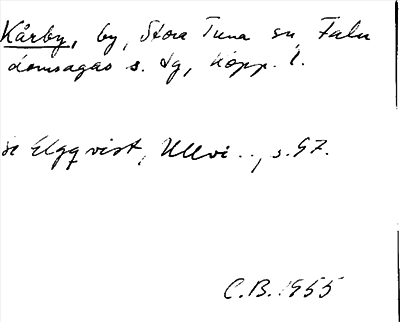 Kårby, by, Stora Tuna sn, Falu
domsagas s. tg, Kopp. l.
se Elgqvist, Ullvi.., s. 97.
C.B. 1955